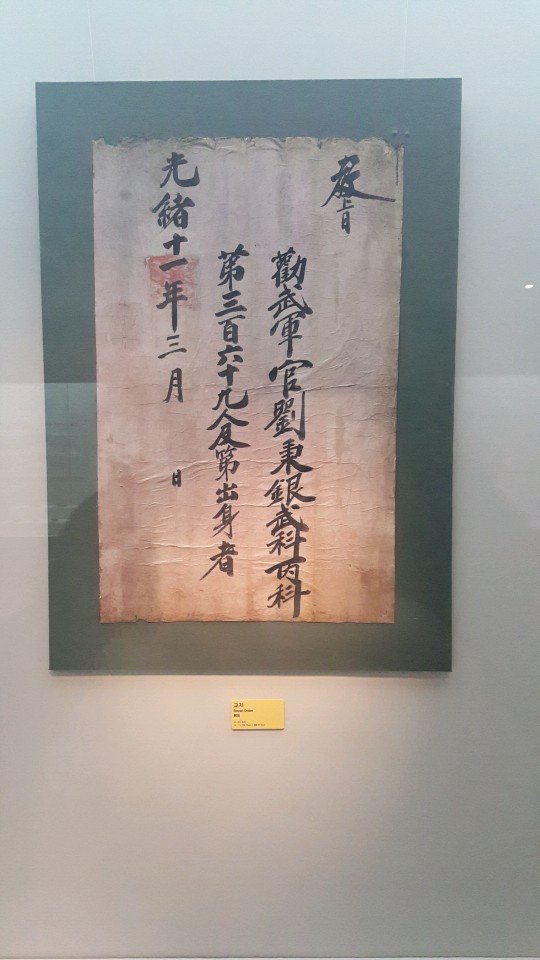 敎旨
勸武軍官劉秉銀武科丙科
第三百六十九人及第出身者
光緖十一年三月 日
교지
Royal Order
敎旨